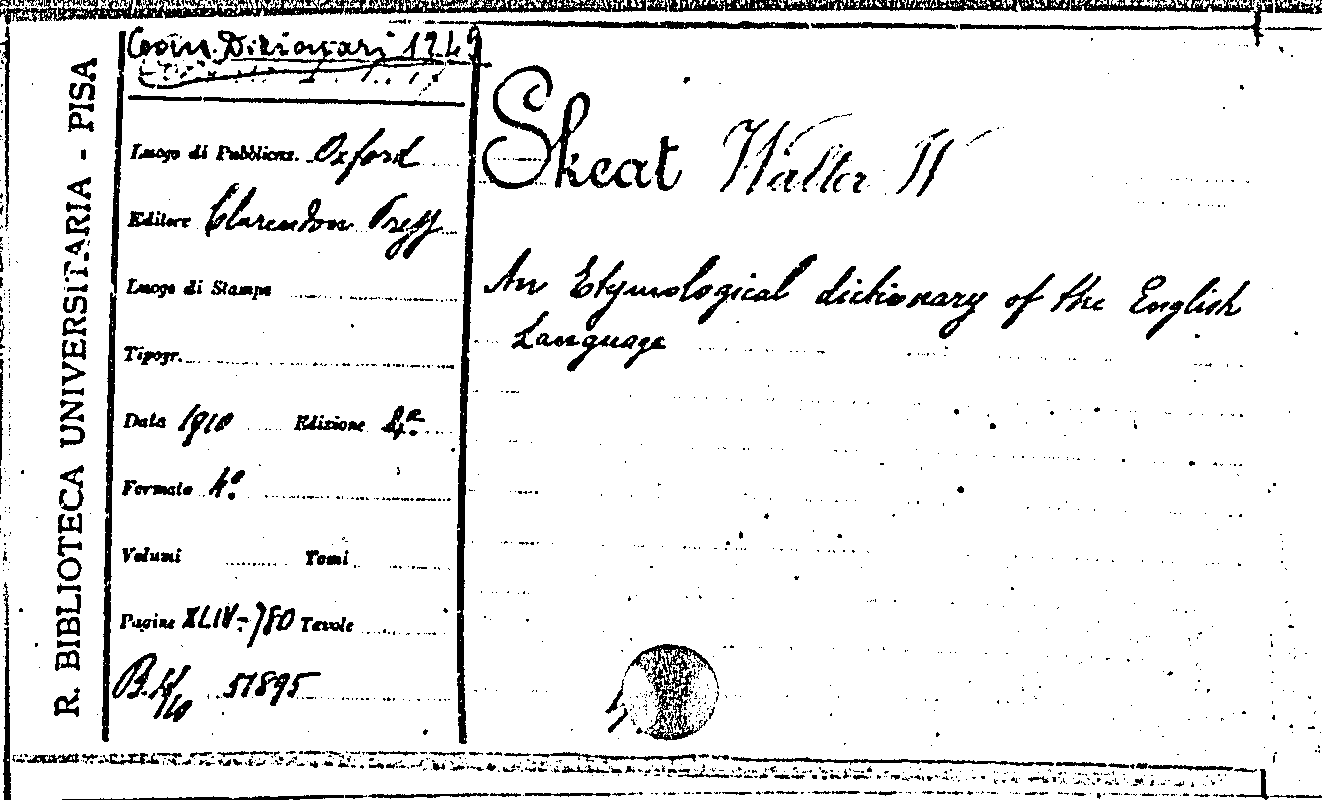 R. BIBLIOTECA UNIVERSITARIA - PISA
Dizionari
Luogo di Pubblicaz. Oxford
Editore Clarendon Press
Luogo di Stampa
Tipogr.
Data 1910 Edizione 4ª
Formato 4º
Volumi Tomi
Pagine XLIV-780 Tavole
51895
Skeat Walter W
An Etymological dictionary of the English
Language